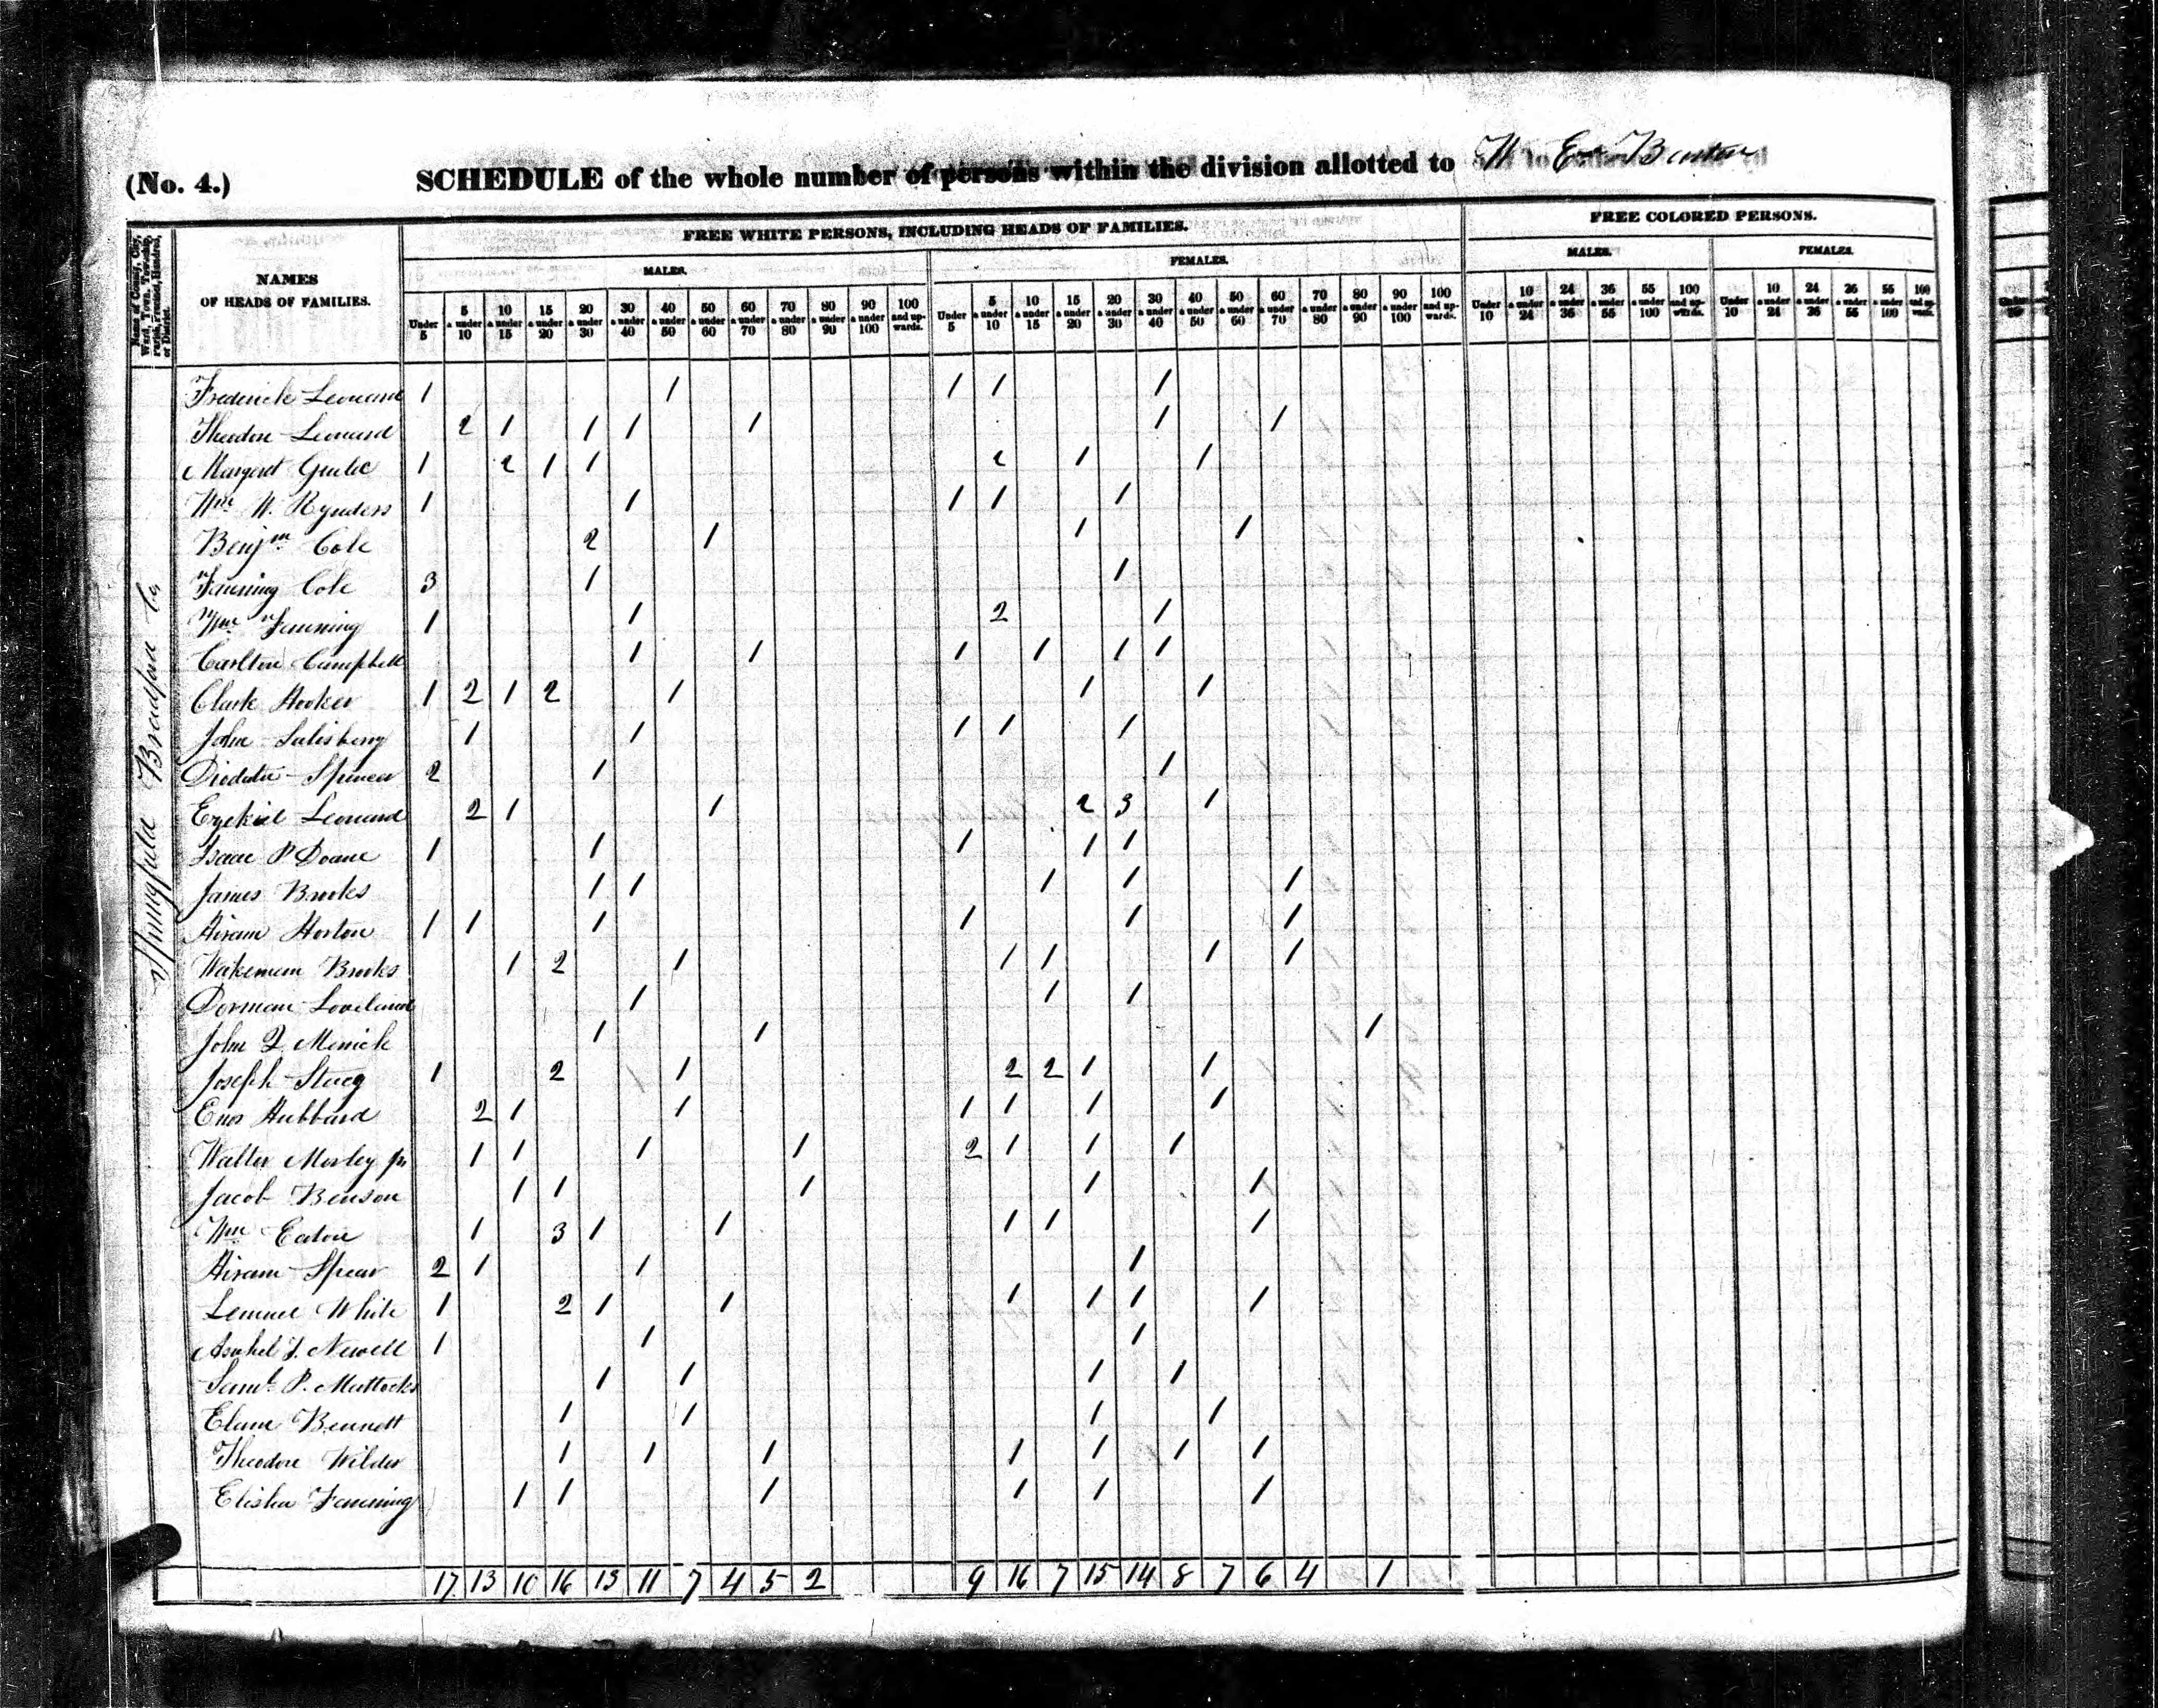 (No. 4.) SCHEDULE of the whole number of persons within the division allotted to
FREE WHITE PERSONS, INCLUDING HEADS OF FAMILIES. FREE COLORED PERSONS.
MALES. FEMALES. MALES. FEMALES.
Name of County, City, Ward, Town, Township, Parish, Precinct, Hundred, or District.
NAMES OF HEADS OF FAMILIES.
Under 5 5 & under 10 10 & under 15 15 & under 20 20 & under 30 30 & under 40 40 & under 50 50 & under 60 60 & under 70 70 & under 80 80 & under 90 90 & under 100 100 and upwards. Under 5 5 & under 10 10 & under 15 15 & under 20 20 & under 30 30 & under 40 40 & under 50 50 & under 60 60 & under 70 70 & under 80 80 & under 90 90 & under 100 100 and upwards. Under 10 10 & under 24 24 & under 36 36 & under 55 55 & under 100 100 and upwards. Under 10 10 & under 24 24 & under 36 36 & under 55 55 & under 100 100 and upwards.
Springfield Bradford Co
Frederick Leonard 1 1 1 1 1
Theodore Leonard 2 1 1 1 1 1 1
Margaret Gulic 1 2 1 1 2 1 1
Wm W. Rynders 1 1 1 1 1
Benjm Cole 2 1 1 1
Fanning Cole 3 1 1
Wm Fanning 1 1 2 1
Carlton Campbell 1 1 1 1 1 1
Clark Hooker 1 2 1 2 1 1 1
John Salisbery 1 1 1 1 1
Diodate Spencer 2 1 1
Ezekiel Leonard 2 1 1 2 3 1
Isaac P Doane 1 1 1 1 1
James Brooks 1 1 1 1 1
Hiram Horton 1 1 1 1 1 1
Wakeman Brooks 1 2 1 1 1 1 1
Dorman Loveland 1 1 1
John Q. Merrick 1 1 1
Joseph Stacy 1 2 1 2 2 1 1
Enos Hubbard 2 1 1 1 1 1 1
Walter Morley Jr 1 1 1 1 2 1 1 1
Jacob Benson 1 1 1 1 1
Wm Eaton 1 3 1 1 1 1 1
Hiram Spear 2 1 1 1
Lemuel White 1 2 1 1 1 1 1 1
Asahel J. Newell 1 1 1
Saml P. Mattocks 1 1 1 1
Elam Bennett 1 1 1 1
Theodore Wilder 1 1 1 1 1 1 1
Elisha Fanning 1 1 1 1 1 1
17 13 10 16 13 11 7 4 5 2 9 16 7 15 14 8 7 6 4 1